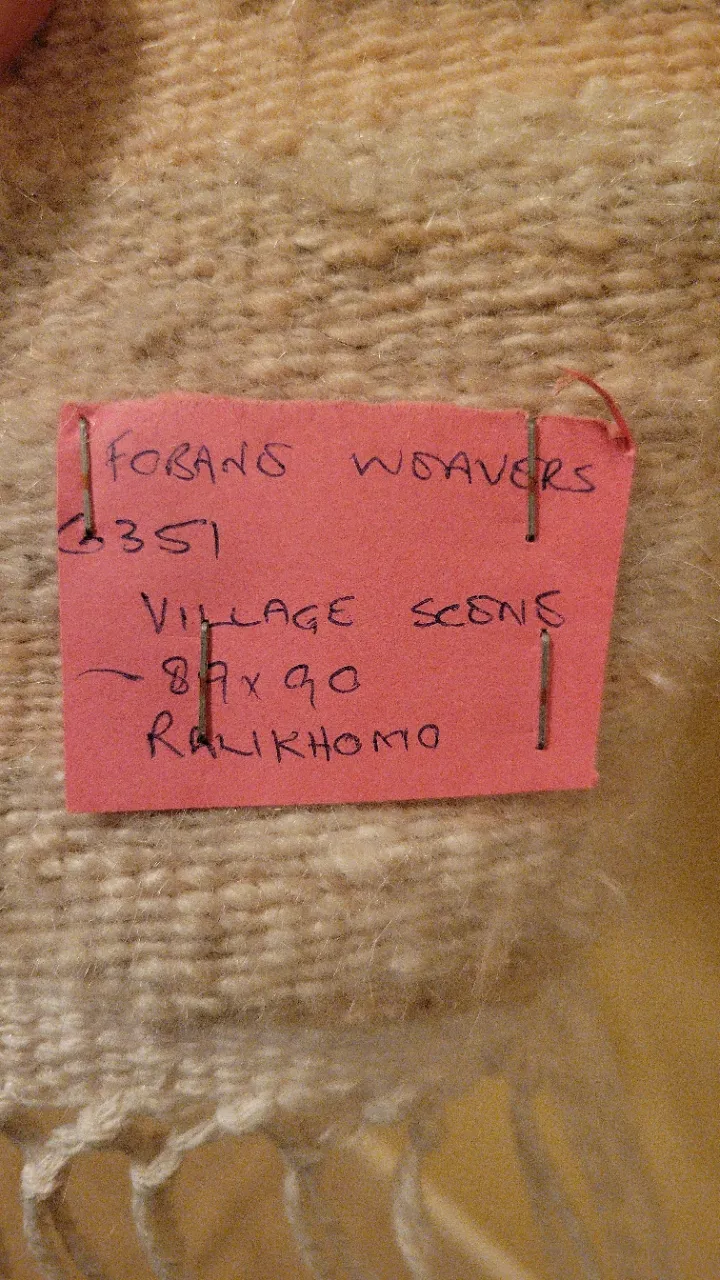 FOBANE WEAVERS
G351
VILLAGE SCENE
- 89 x 90
RALIKHOMO